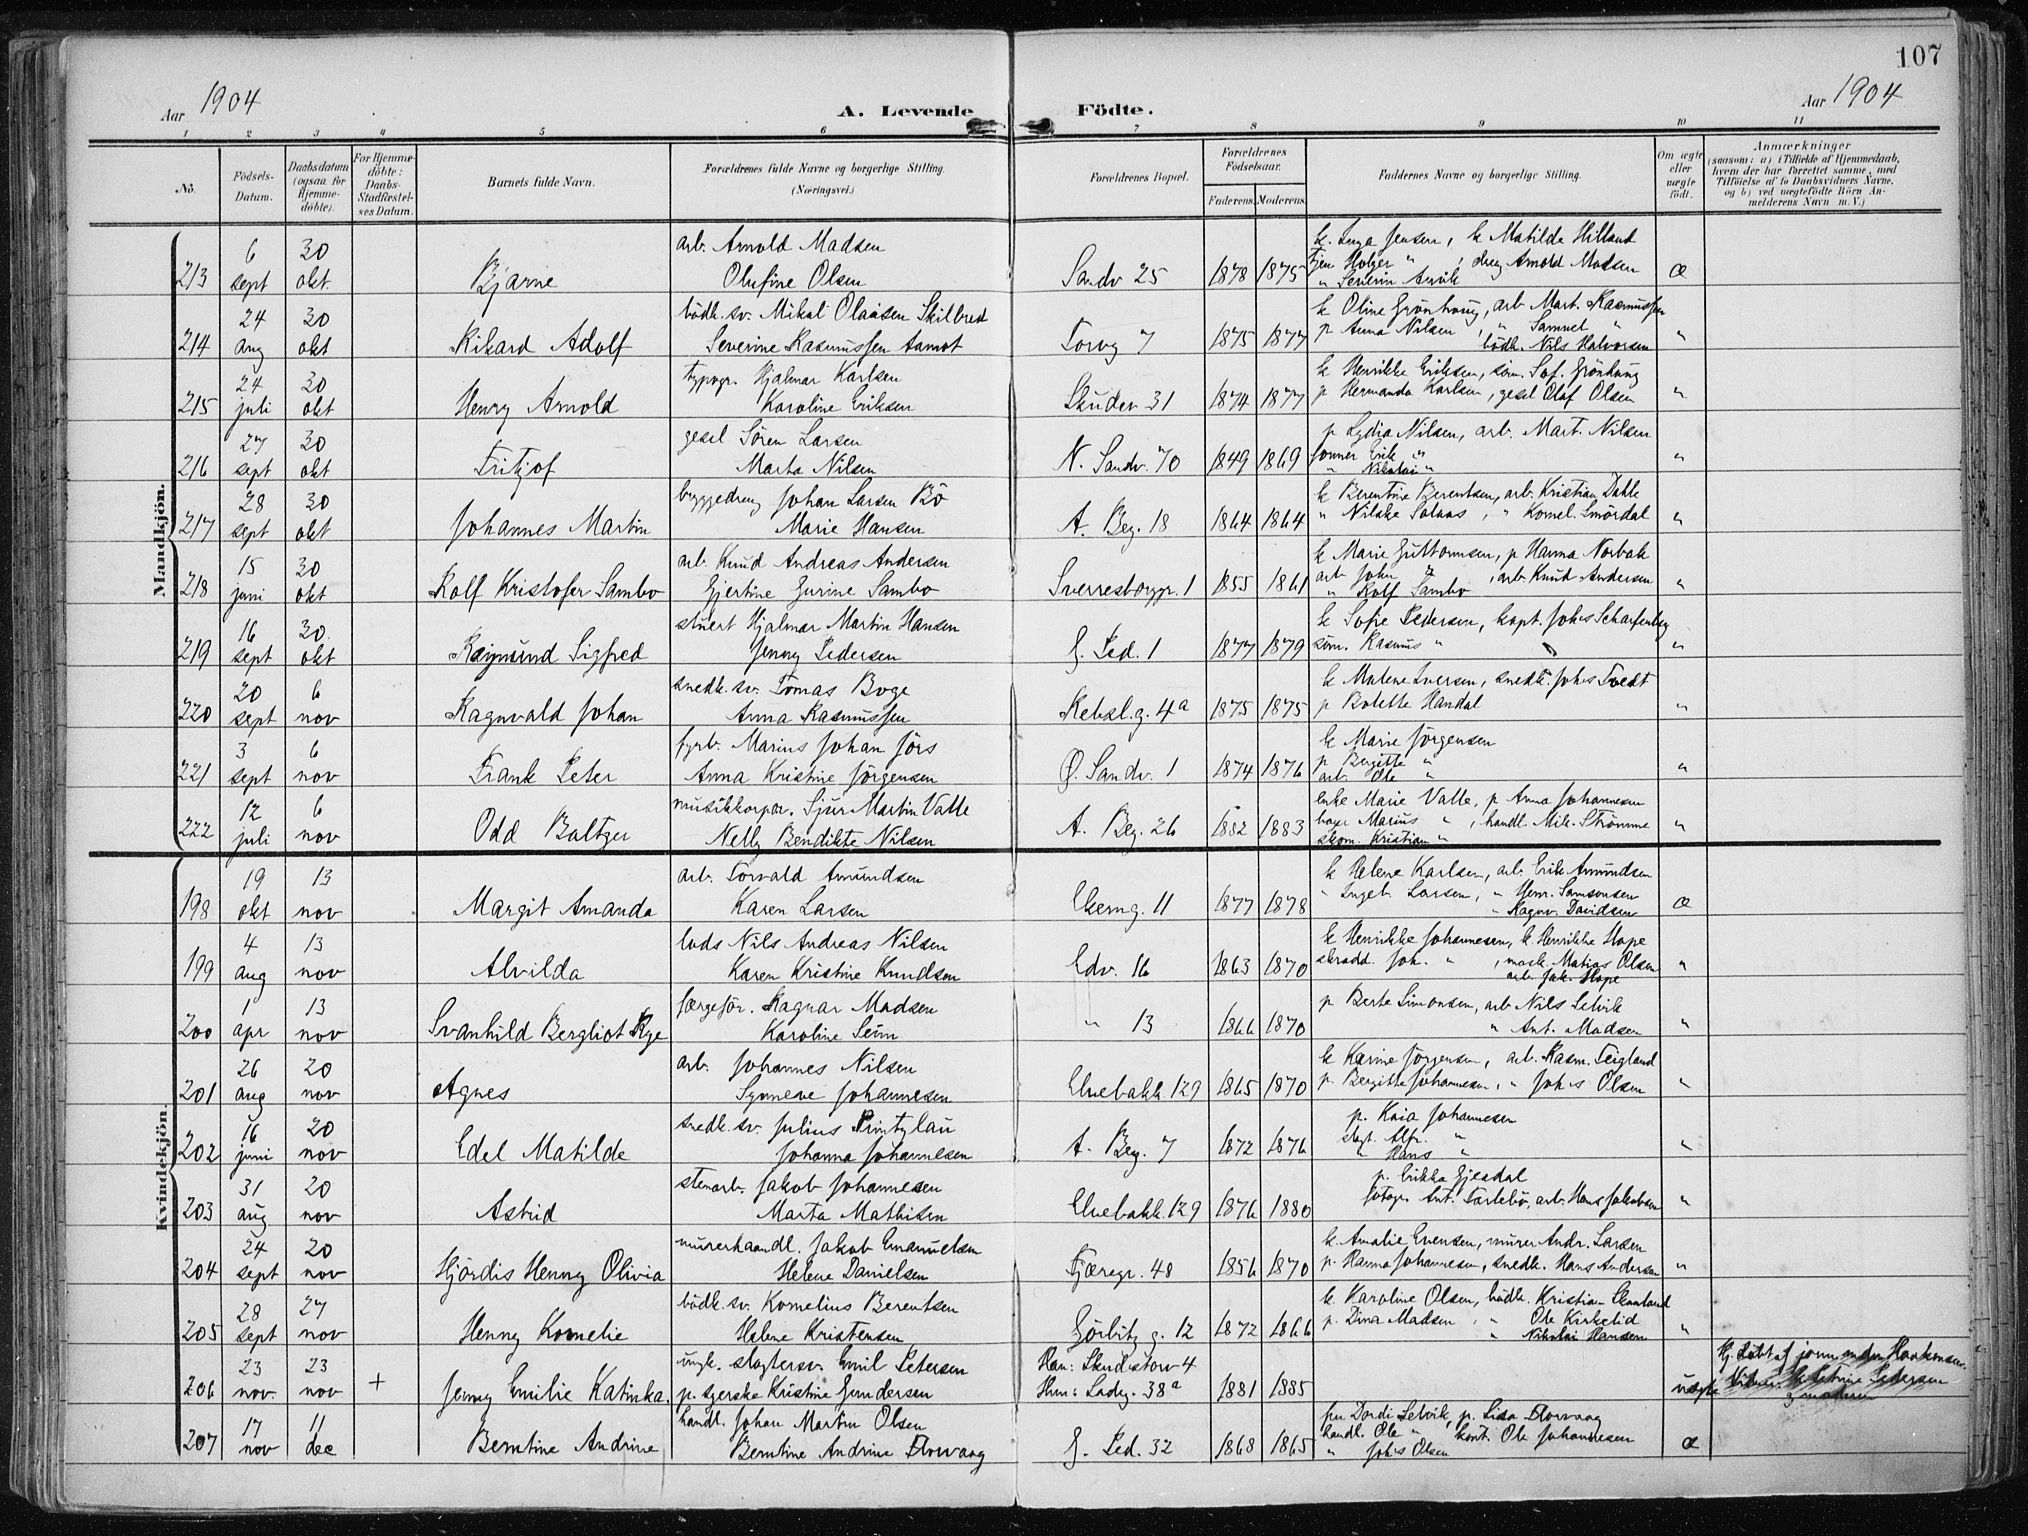 107
Aar 1904 A. Levende Födte. Aar 1904
1 2 3 4 5 6 7 8 9 10 11
No. Födsels-Datum. Daabsdatum (ogsaa for Hjemme-döbte). For Hjemme-döbte: Daabs-Stadfæstel-ses Datum. Barnets fulde Navn. Forældrenes fulde Navne og borgerlige Stilling. (Næringsvei.) Forældrenes Bopæl. Forældrenes Födselsaar. Faderens. Moderens. Faddernes Navne og borgerlige Stilling. Om ægte eller uægte födt. Anmærkninger (saasom: a) i Tilfælde af Hjemmedaab, hvem der har forrettet samme, med Tilföielse af to Daabsvidners Navne, og b) ved uægtefödte Börn Anmelderens Navn m. V.)
Mandkjön.
213 6 sept 30 okt. Bjarne
arb. Arnold Madsen
Olufine Olsen
Sandv 25 1878 1875
k. Inga Jensen, k Matilde Hilland
Tjen Holger " , dreg Arnold Madsen
" Severin Anvik
æ
214 24 aug 30 okt Rikard Adolf
bödk. sv. Mikal Olaisen Skilbred
Severine Rasmussen Aamot
Torvg 7 1875 1877
k Oline Grönhaug, arb. Mart. Rasmussen
p Anna Nilsen, " Samuel "
bödk. Nils Halvorsen
"
215 24 juli 30 okt Henry Arnold
typogr. Hjalmar Karlsen
Karoline Eriksen
Skudev 31 1874 1877
k Henrikke Eriksen, söm. Sof. Grönhaug
p Hermanda Karlsen, gesel Olaf Olsen
"
216 27 sept 30 okt Fritjof
gesel Sören Larsen
Marta Nilsen
N. Sandv. 70 1849 1869
p Lydia Nilsen, arb. Mart. Nilsen
Erik "
" Nikolai "
"
217 28 sept 30 okt Johannes Martin
byggedreng Johan Larsen Bö
Marie Hansen
A. Beg. 18 1864 1864
k Berentine Berentsen, arb. Kristian Dahle
" , " Kornel. Smördal
"
218 15 juni 30 okt Rolf Kristofer Sambo
arb. Knud Andreas Andersen
Gjertine Gurine Sambo
Sverresborggt. 1 1855 1861
k Marie Guttormsen, p Hanna Norbak
arb John " , arb. Knud Andersen
" Rolf Sambo
"
219 16 sept 30. okt Raymund Sigfred
stuert Hjalmar Martin Hansen
Jenny Pedersen
J. Ped. 1 1877 1879
k Sofie Pedersen, kapt. Johs Scharfenberg
söm. Rasmus "
"
220 20 sept 6 nov Ragnvald Johan
snedk. sv. Tomas Boge
Anna Rasmussen
Retsl.g. 4a 1875 1875
k Malene Iversen, snedk. Johs Tvedt
p Bolette Handal
"
221 3 sept 6 nov Frank Peter
fyrb. Marius Johan Jörs
Anna Kristine Jörgensen
Ø. Sandv. 1 1874 1876
k Marie Jörgensen
p Bergitte "
arb. Ole "
"
222 12 juli 6 nov Odd Baltzer
musikkorpor. Sjur Martin Valle
Nelly Bendikte Nilsen
A. Beg. 26 1882 1883
enke Marie Valle, p Anna Johannesen
Marius " , handl. Mik. Strömme
skom. Kristian "
"
Kvindekjön.
198 19 okt 13 nov Margit Amanda
arb. Torvald Amundsen
Karen Larsen
Ekerng. 11 1877 1878
k Helene Karlsen, arb. Erik Amundsen
" Ingeb. Larsen, " Henr. Samsonsen
" Ragnv. Davidsen
æ
199 4 aug 13 nov Alvilda
lods Nils Andreas Nilsen
Karen Kristine Knudsen
Edv. 16 1863 1870
k Henrikke Johannesen, k. Henrikke Hope
skradd. Joh. " , mask. Matias Olsen
arb. Jak. Hope
"
200 1 apr 13 nov Svanhild Bergliot Rye
færgeför. Ragnar Madsen
Karoline Seim
" 13 1866 1870
p Berte Simonsen, arb Nils Selvik
" Ant. Madsen
"
201 26 aug 20 nov Agnes
arb. Johannes Nilsen
Synneve Johannesen
Elvebakk. 129 1865 1870
k Karine Jörgensen, arb. Rasm. Teigland
p. Bergitte Johannesen, " Johs Olsen
"
202 16 juni 20 nov Edel Matilde
snedk. sv. Julius Printzlau
Johanna Johannesen
A. Beg. 7 1872 1876
p. Kaia Johannesen
slagt. Alfr. "
" Hans "
"
203 31 aug 20 nov Astrid
stenarb. Jakob Johannesen
Marta Mathisen
Elvebakk. 129 1876 1880
p. Erikka Gjesdal
fotogr. Ant. Tarlebö, arb. Hans Jakobsen
"
204 24 sept 20 nov Hjördis Henny Olivia
murerhaandl. Jakob Emanuelsen
Helene Danielsen
Fjæregr. 48 1856 1870
k. Amalie Evensen, murer Andr. Larsen
p. Hanna Johannesen, snedk. Hans Andersen
"
205 28 sept 27 nov Henny Kornelie
bödk. sv. Kornelius Berentsen
Helene Kristensen
Görbitz g. 12 1872 1866
k. Karoline Olsen, bödk. Kristian Skanland
p. Dina Madsen, " Ole Kirkelid
" Nikolai Hansen
"
206 23 nov. 23 nov + Jenny Emilie Katinka.
ungk. slagtersv. Emil Petersen
p. syerske Kristine Gundersen
Han: Skudestorv 4
Hun: Ladeg. 38a 1881 1885
uægte
Hj. döbt af jormoderen Haakonsen.
207 17 nov 11 dec Berntine Andrine
handl. Johan Martin Olsen
Berntine Andrine Florvaag
J. Ped. 32 1868 1865
fru Dordi Selvik, p. Lisa Florvaag
handl. Ole " kont. Ole Johannesen
" Johs Olsen
æ